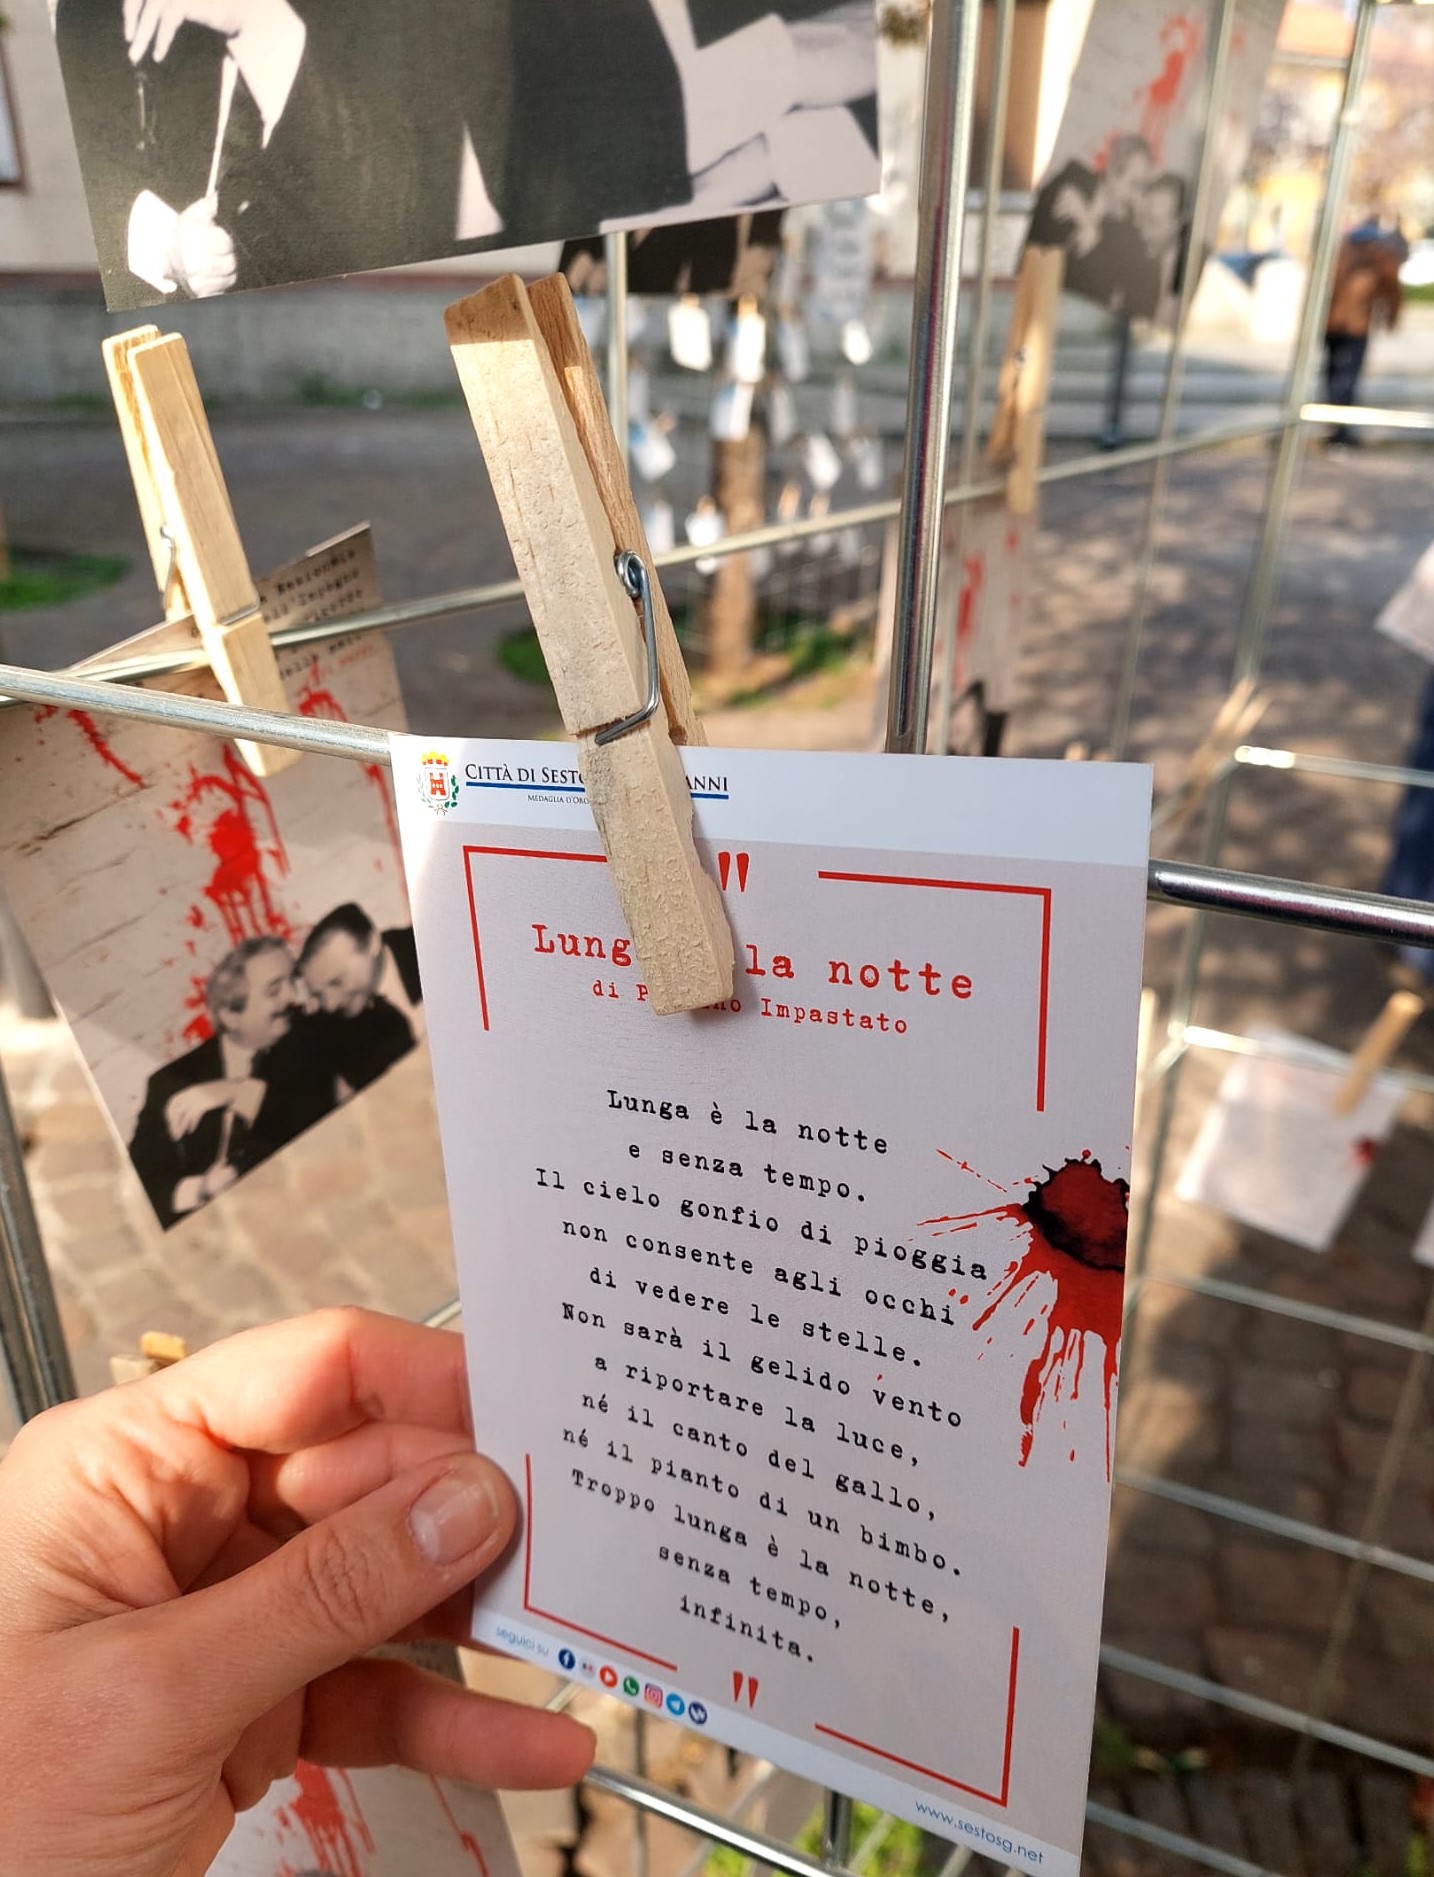 CITTÀ DI SESTO ANNI
MEDAGLIA D'ORO
"
Lung la notte
di P no Impastato
Lunga è la notte
e senza tempo.
Il cielo gonfio di pioggia
non consente agli occhi
di vedere le stelle.
Non sarà il gelido vento
a riportare la luce,
né il canto del gallo,
né il pianto di un bimbo.
Troppo lunga è la notte,
senza tempo,
infinita.
"
seguici su
www.sestosg.net